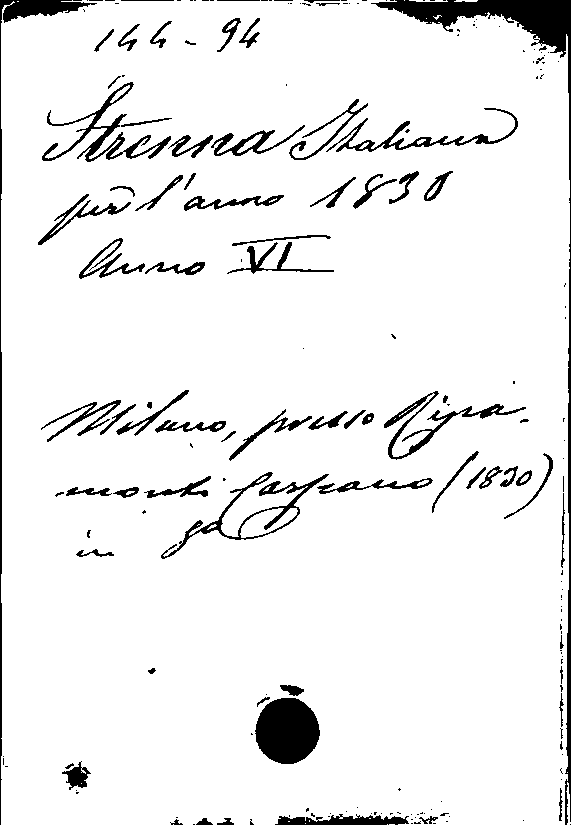 144-94
Strenna Italiana
per l'anno 1830
Anno VI
Milano, presso Ripa-
monti Carpano (1830)
in